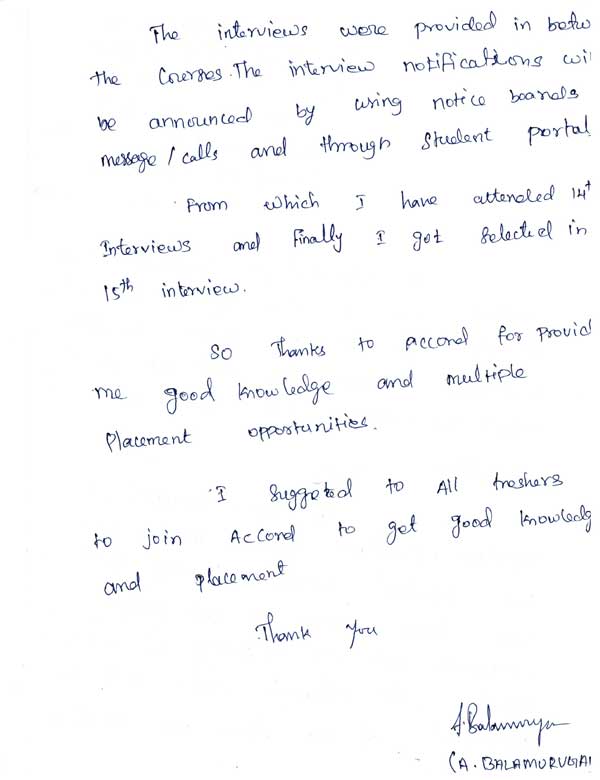 The interviews were provided in betw
the Courses. The interview notifications wil
be announced by using notice boards
message / calls and through Student portal
From which I have attended 14t
Interviews and Finally I got selected in
15th interview.
So Thanks to Accord for Provid
me good knowledge and multiple
Placement opportunities.
I Suggeted to All freshers
to join Accord to get good knowledg
and placement
Thank You
A. Balamurugan
(A. BALAMURUGAN